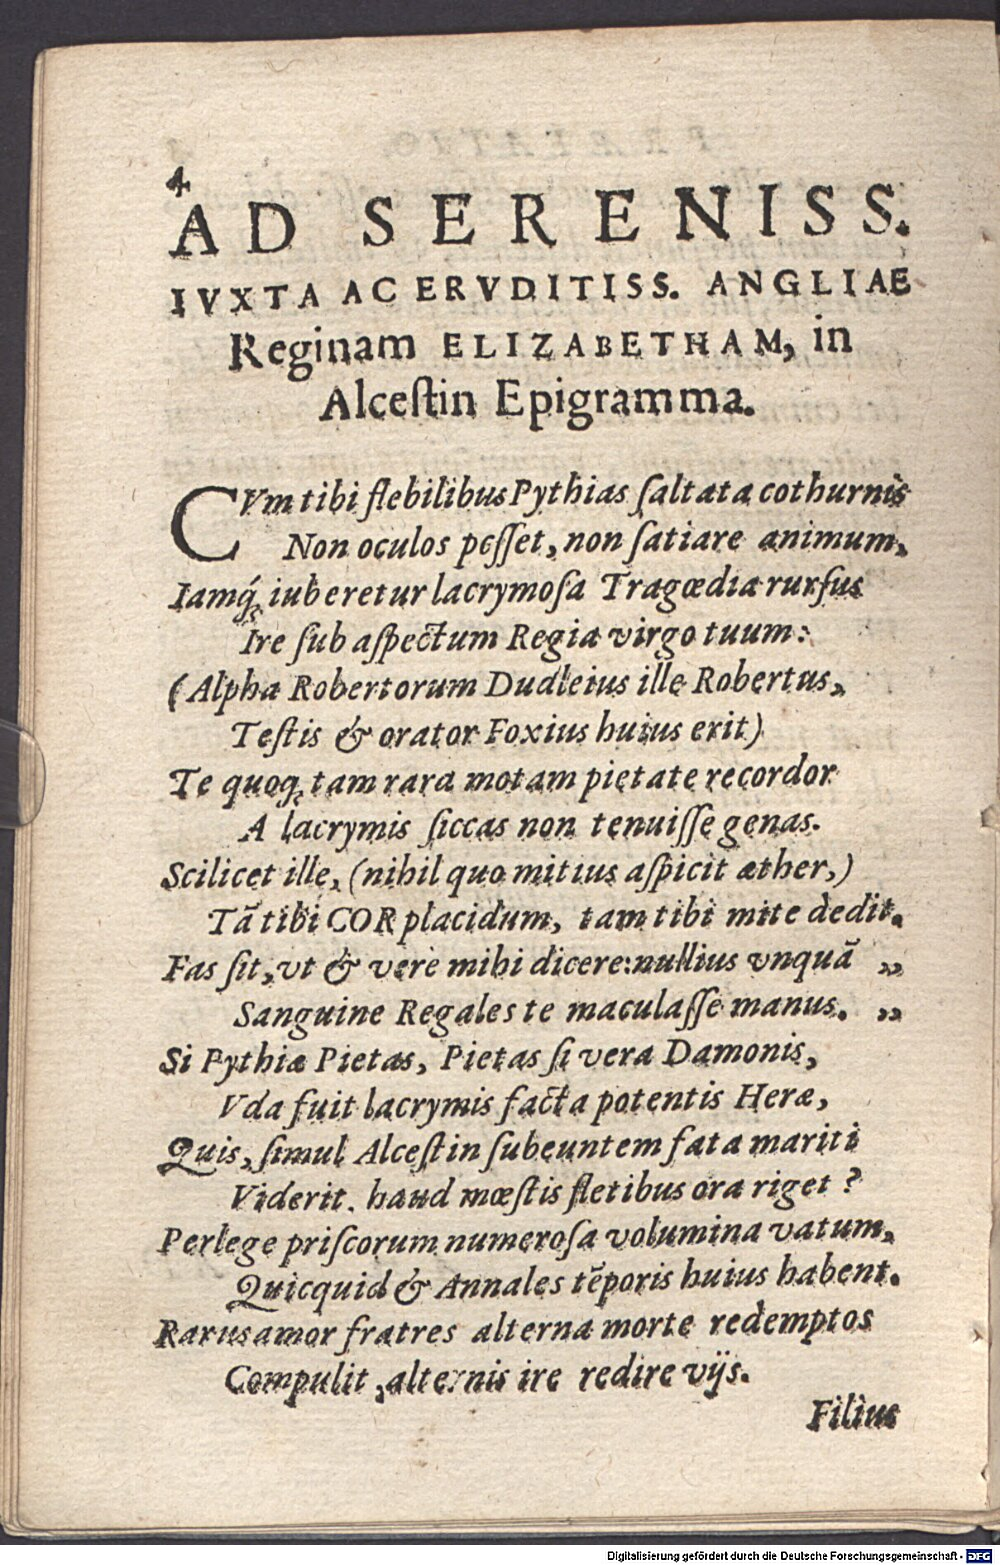 4
AD SERENISS.
IVXTA AC ERVDITISS. ANGLIAE
Reginam ELIZABETHAM, in
Alceſtin Epigramma.
CVm tibi flebilibus Pythias ſaltata cothurnis
Non oculos poſſet, non ſatiare animum,
Iamq́; iuberetur lacrymoſa Tragœdia rurſus
Ire ſub aſpectum Regia virgo tuum:
(Alpha Robertorum Dudleius ille Robertus,
Teſtis & orator Foxius huius erit)
Te quoq; tam rara motam pietate recordor
A lacrymis ſiccas non tenuiſſe genas.
Scilicet ille, (nihil quo mitius aſpicit æther,)
Tā tibi COR placidum, tam tibi mite dedit.
Fas ſit, vt & verè mihi dicere: nullius vnquā „
Sanguine Regales te maculaſſe manus. „
Si Pythiæ Pietas, Pietas ſi vera Damonis,
Vda fuit lacrymis facta potentis Heræ,
Quis, ſimul Alceſtin ſubeuntem fata mariti
Viderit, haud mœſtis fletibus ora riget?
Perlege priſcorum numeroſa volumina vatum,
Quicquid & Annales tēporis huius habent.
Rarus amor fratres alterna morte redemptos
Compulit, alternis ire redire vijs.
Filius
Digitalisierung gefördert durch die Deutsche Forschungsgemeinschaft - DFG